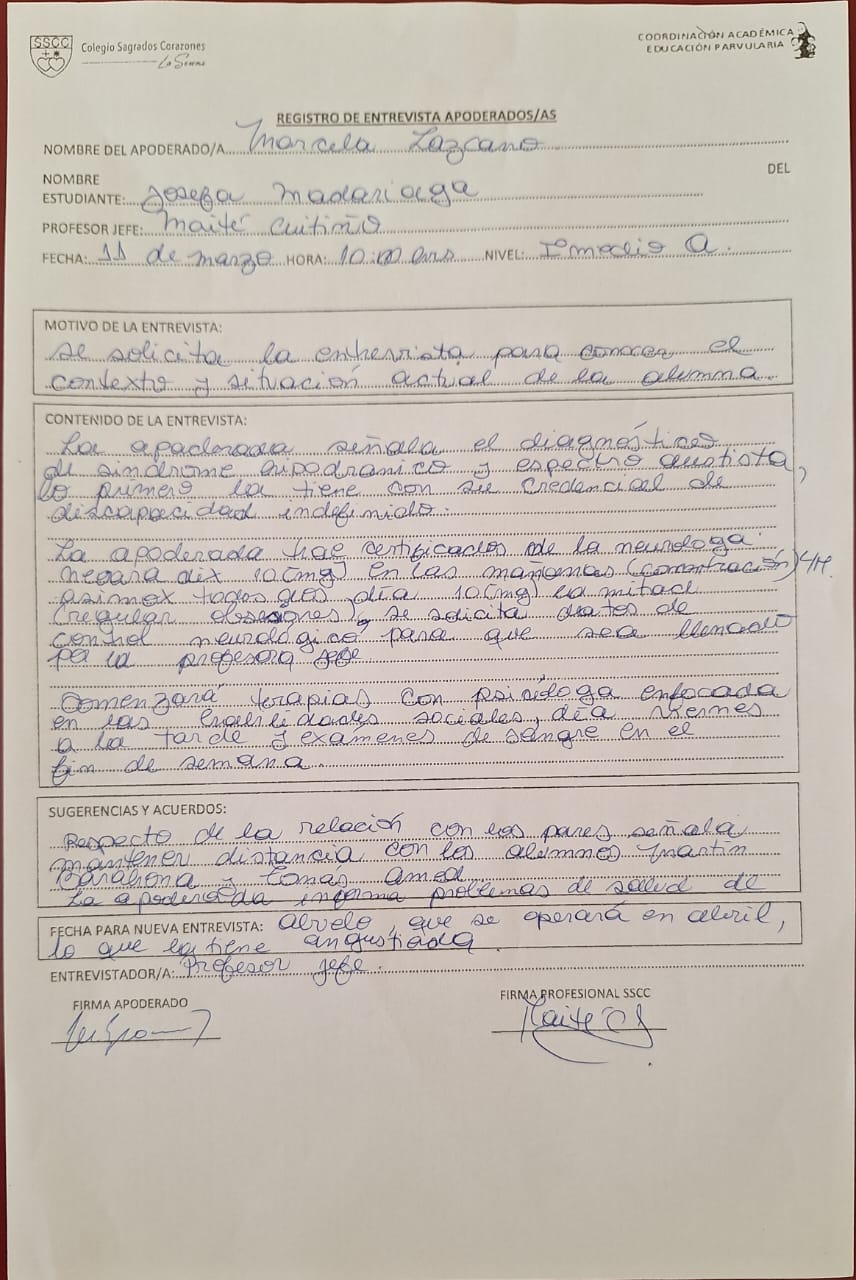 SSCC
Colegio Sagrados Corazones
La Serena
COORDINACIÓN ACADÉMICA
EDUCACIÓN PARVULARIA
REGISTRO DE ENTREVISTA APODERADOS/AS
NOMBRE DEL APODERADO/A Marcela Lazcano
NOMBRE DEL
ESTUDIANTE: Josefa Madariaga
PROFESOR JEFE: Maité Cuitiño
FECHA: 11 de marzo HORA: 10:00 hrs NIVEL: Iº medio A.
MOTIVO DE LA ENTREVISTA:
Se solicita la entrevista para conocer el
contexto y situación actual de la alumna
CONTENIDO DE LA ENTREVISTA:
La apoderada señala el diagnóstico
de síndrome y espectro autista,
lo primero la tiene con su credencial de
discapacidad indefinido.
La apoderada trae certificados de la neurologa:
dix 10 (mg) en las mañanas (concentración) 4H.
asimox todos los día 10 (mg) la mitad
(regular obsesiones), se solicita datos de
control neurologico para que sea llenado
por la profesora jefe
Comenzará terapias con psicóloga enfocada
en las habilidades sociales, día viernes
a la tarde y exámenes de sangre en el
fin de semana.
SUGERENCIAS Y ACUERDOS:
Respecto de la relación con los pares señala
mantener distancia con los alumnos Martín
Barahona y Tomas
La apoderada informa problemas de salud de
FECHA PARA NUEVA ENTREVISTA: abuelo, que se operará en abril,
lo que la tiene angustiada.
ENTREVISTADOR/A: Profesor jefe.
FIRMA APODERADO
FIRMA PROFESIONAL SSCC
Maité C